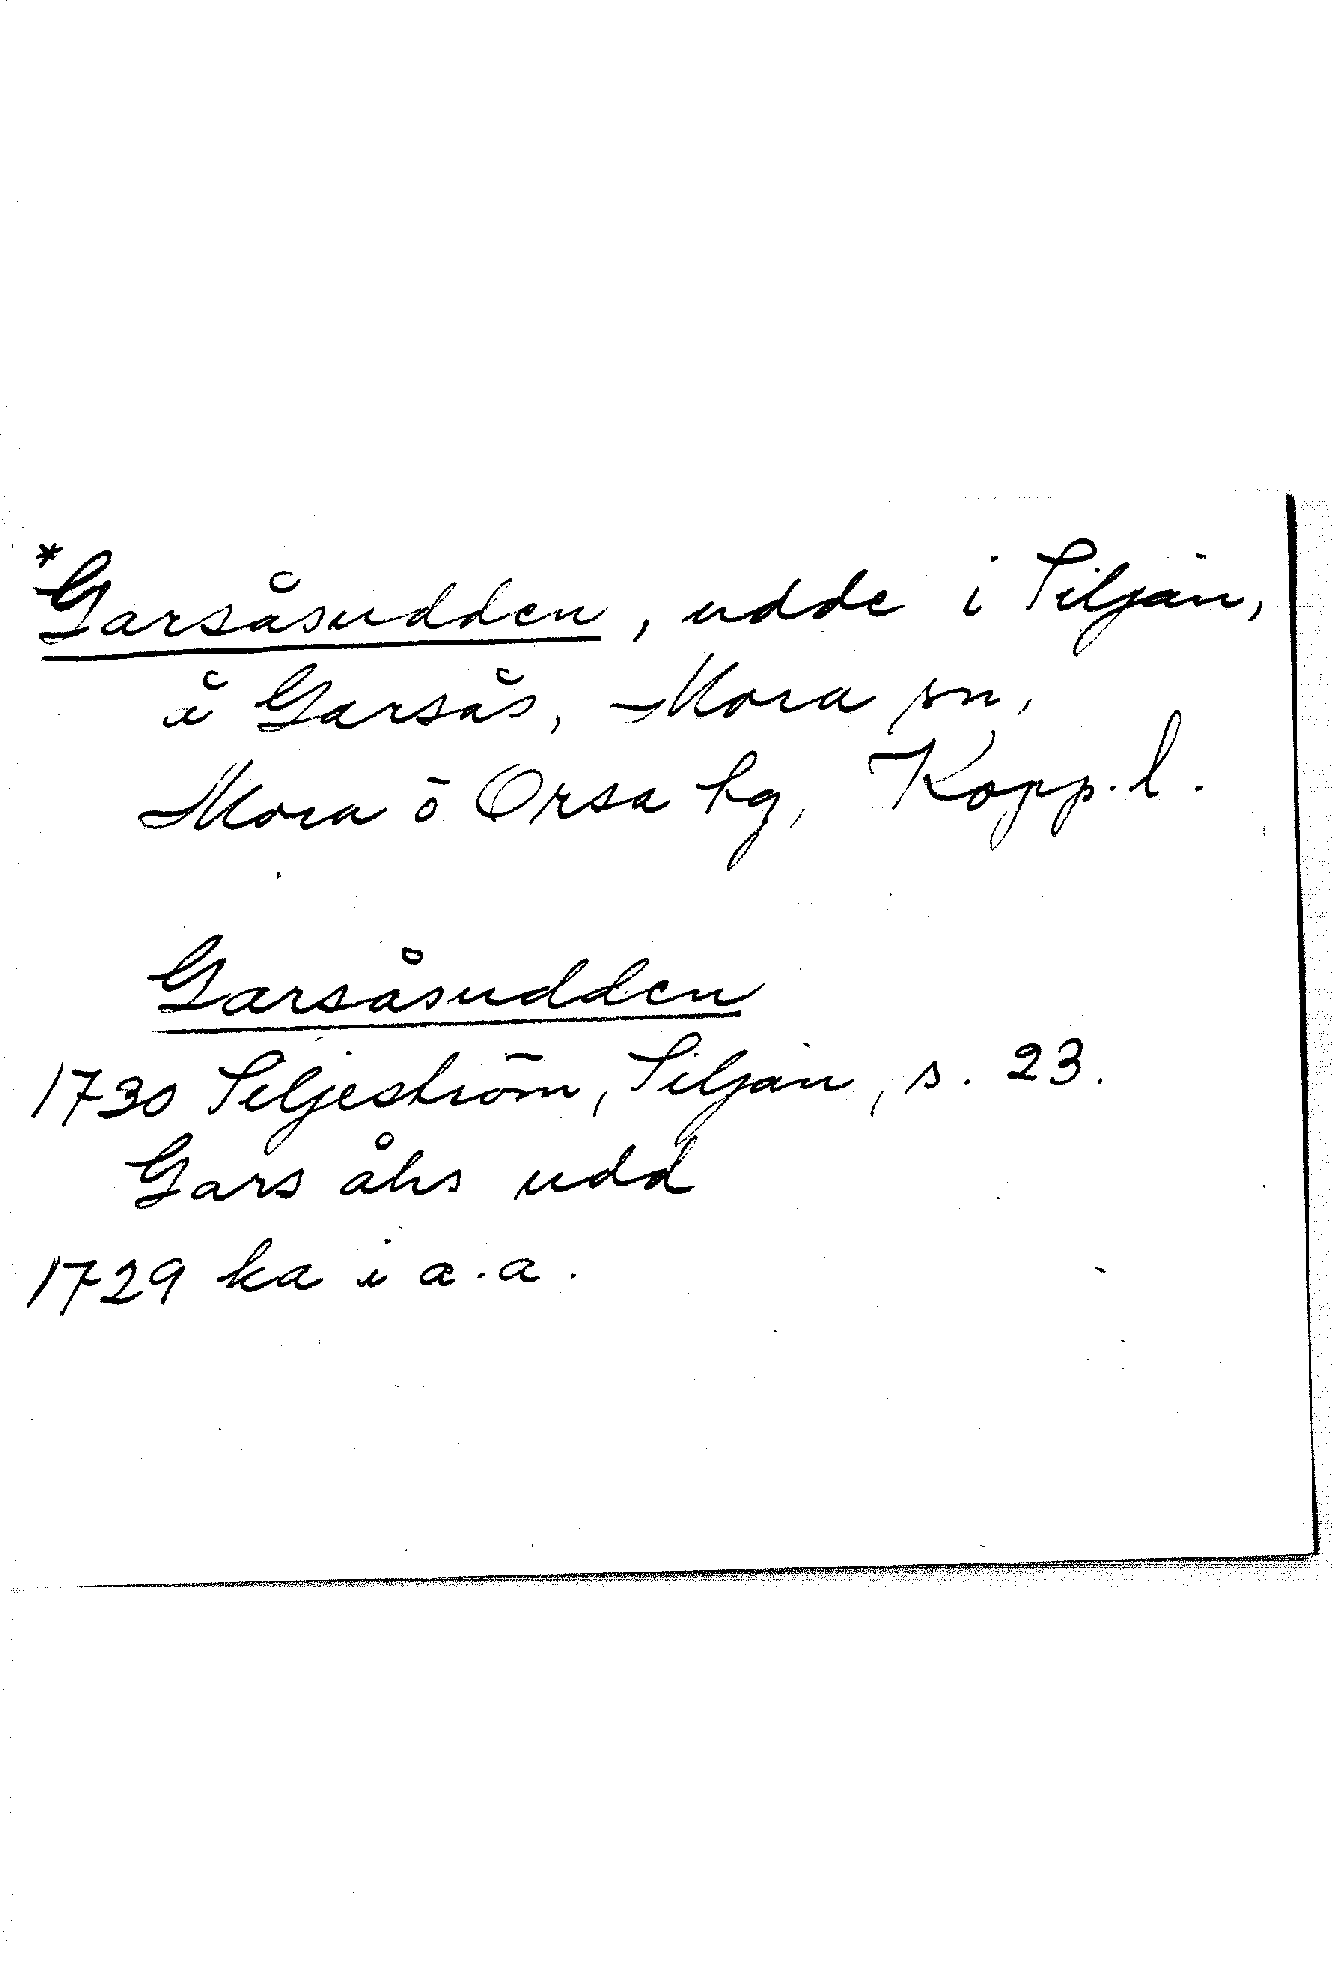 *Garsåsudden, udde i Siljan,
å Garsås, Mora sn,
Mora o Orsa hg, Kopp. l.
Garsåsudden
1730 Siljeström, Siljan, s. 23.
Gars åhs udd
1729 ka i a.a.